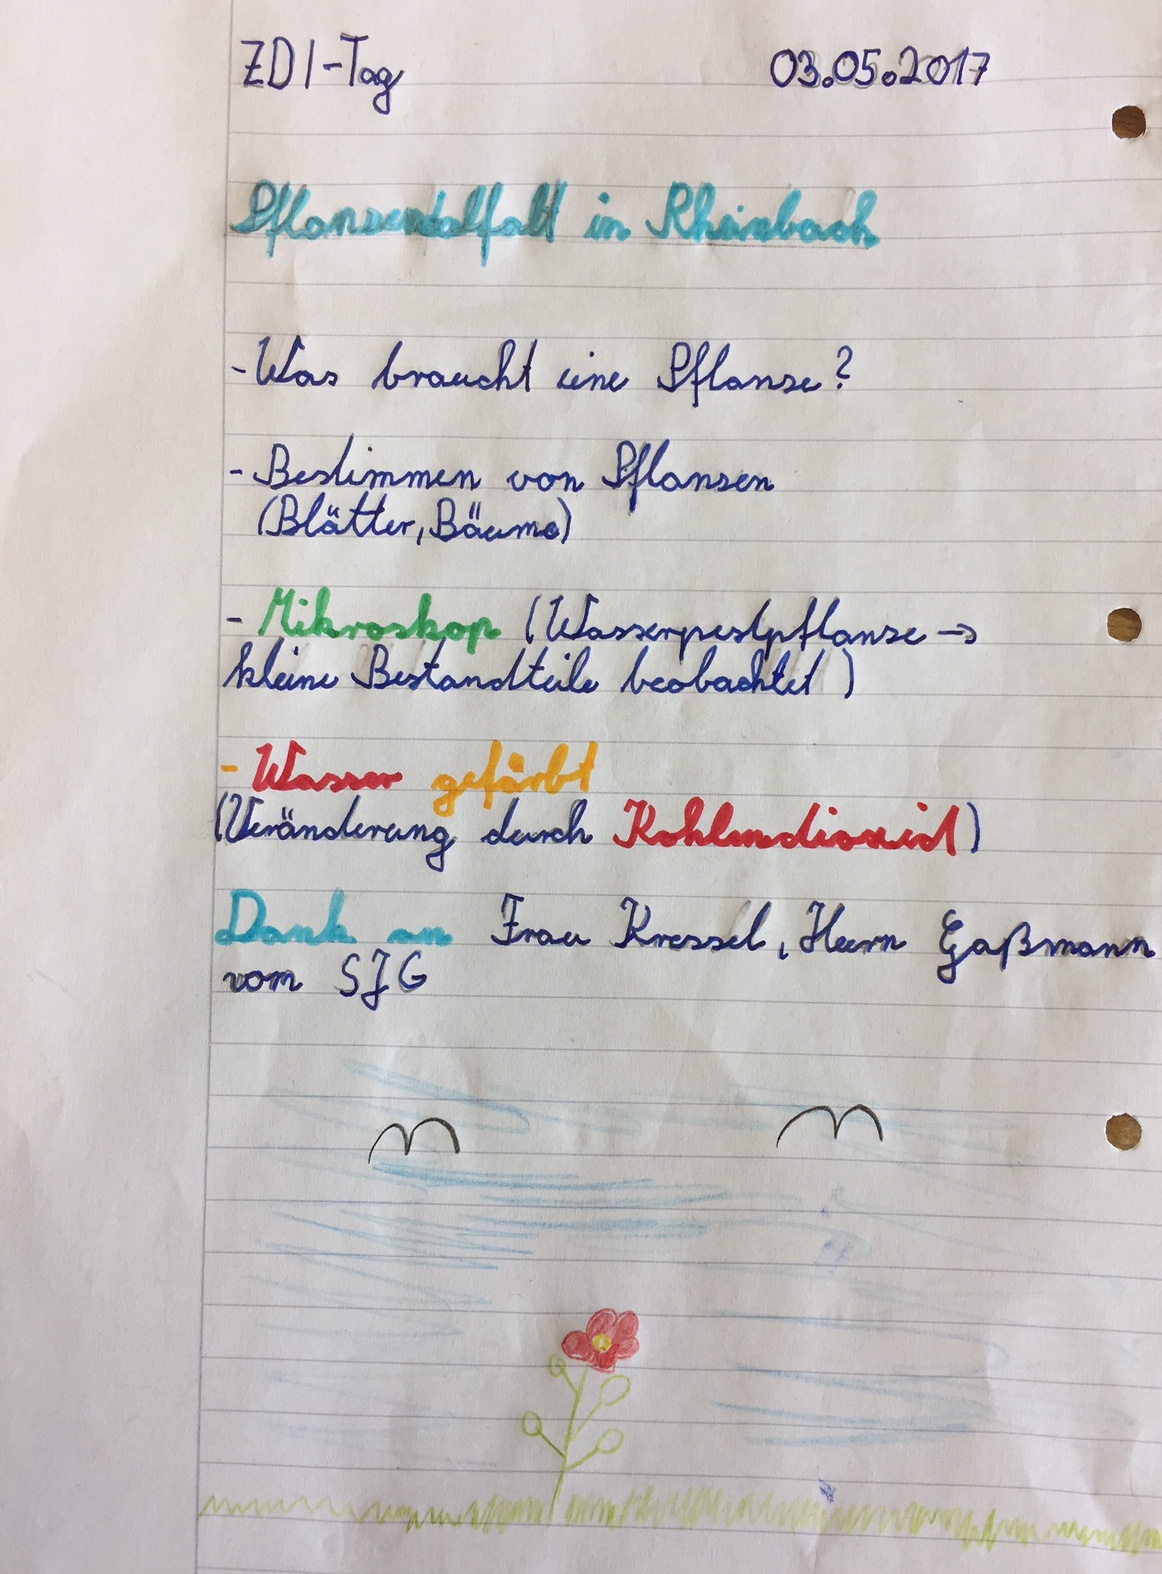 ZDI-Tag 03.05.2017
Pflanzentalfalt in Rheinbach
- Was braucht eine Pflanze?
- Bestimmen von Pflanzen
(Blätter, Bäume)
- Mikroskop (Wasserpestpflanze →
kleine Bestandteile beobachtet)
- Wasser gefärbt
(Veränderung durch Kohlendioxid)
Dank an Frau Kressel, Herrn Gaßmann
vom SJG